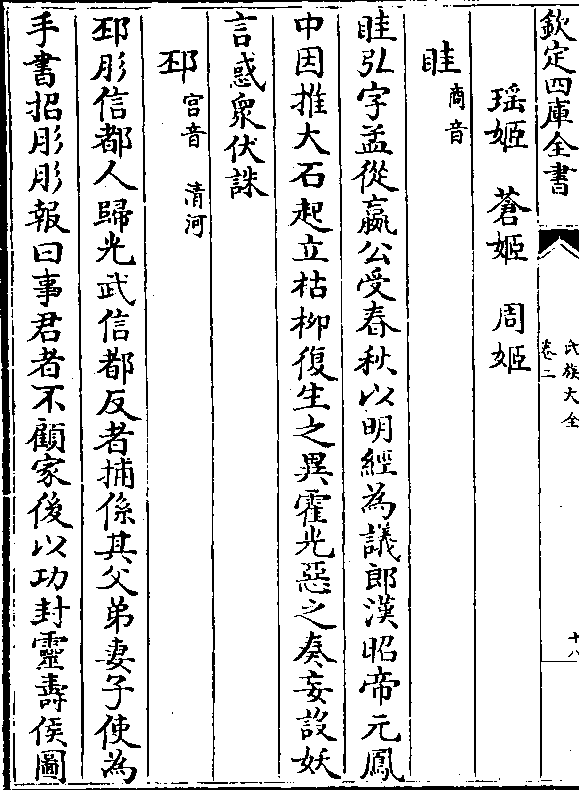 欽定四庫全書
氏族大全
卷二
十八
瑶姬　蒼姬　周姬
眭商音
眭弘字孟從嬴公受春秋以明經為議郎漢昭帝元鳳
中因推大石起立枯柳復生之異霍光惡之奏妄設妖
言惑衆伏誅
邳宫音　清河
邳彤信都人歸光武信都反者捕係其父弟妻子使為
手書招彤彤報曰事君者不顧家後以功封靈壽侯圖